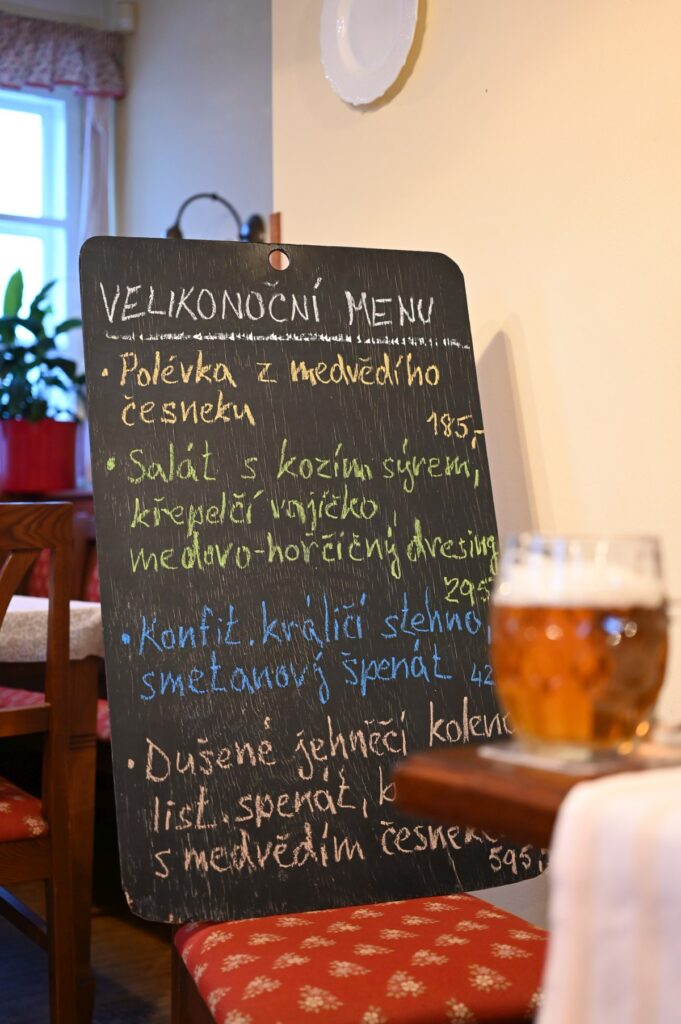 VELIKONOČNÍ MENU
• Polévka z medvědího
česneku
185,-
• Salát s kozím sýrem,
křepelčí vajíčko,
medovo-hořčičný dresing
295
• Konfit. králičí stehno,
smetanový špenát
• Dušené jehněčí
list. špenát,
s medvědím
595,-